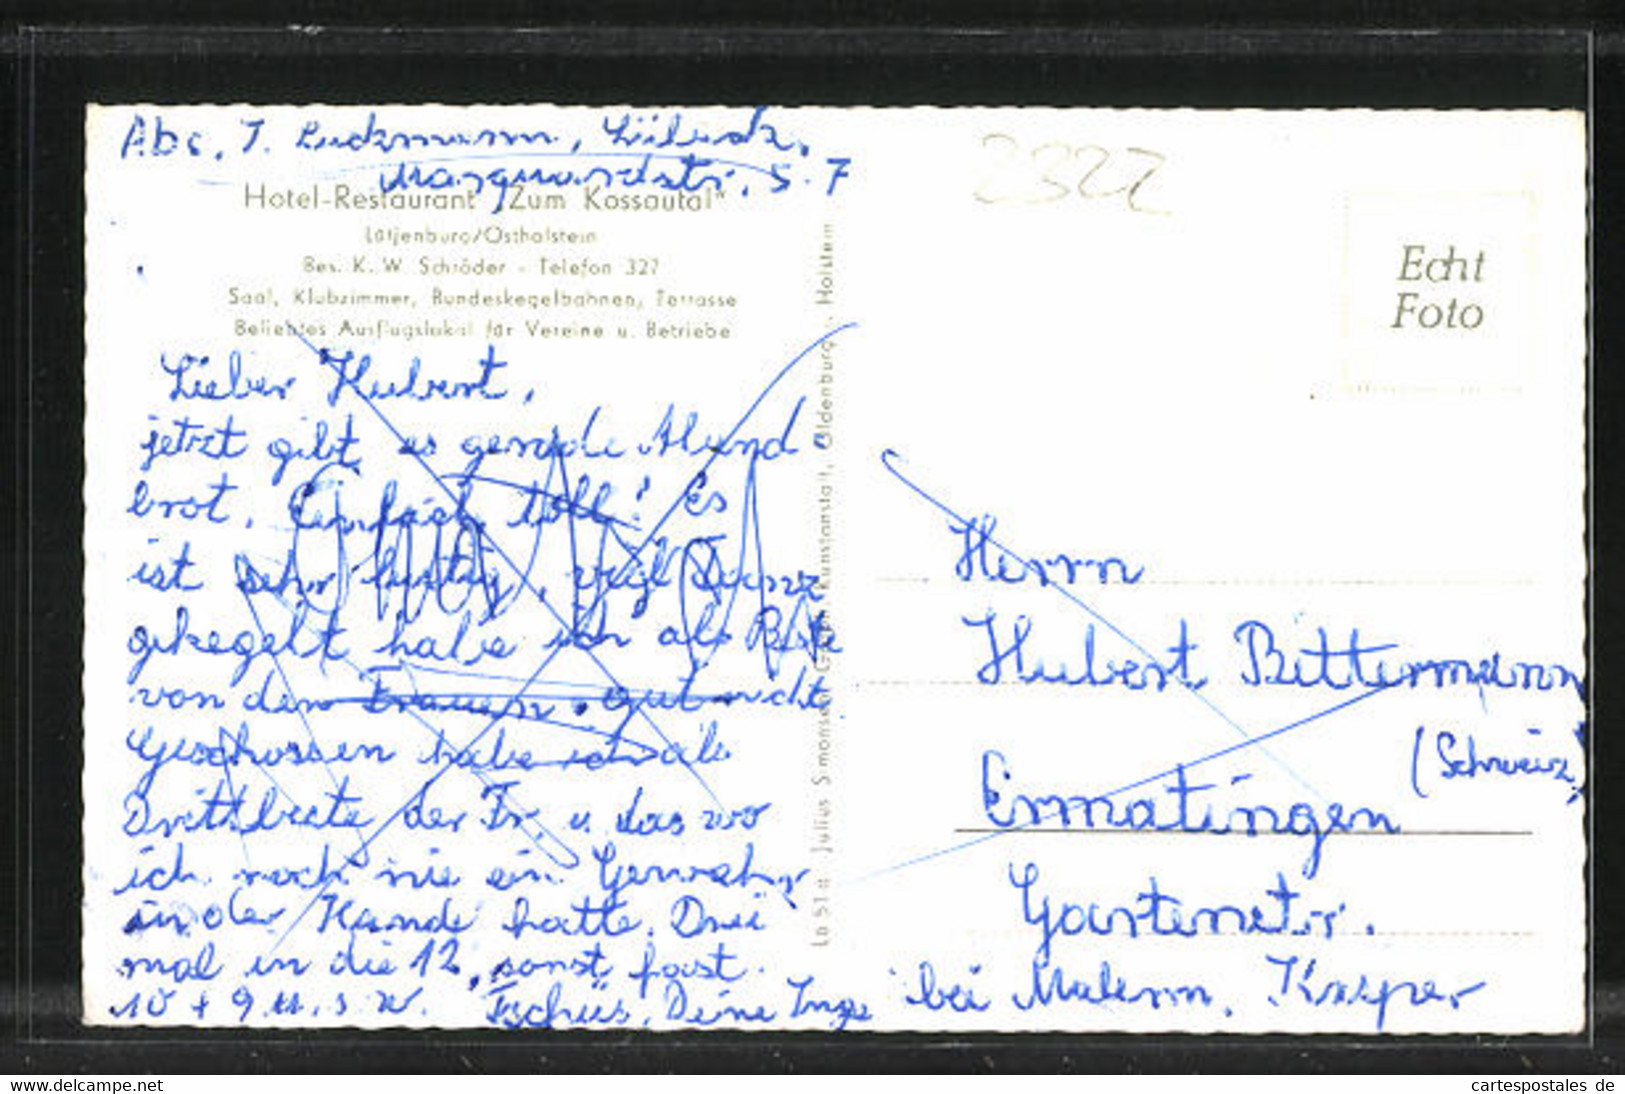 Abs. I. Luckmann, Lübeck,
Marquardstr. 5-7
2322
Hotel-Restaurant „Zum Kossautal"
Lütjenburg/Ostholstein
Bes. K. W. Schröder - Telefon 327
Saal, Klubzimmer, Bundeskegelbahnen, Terrasse
Beliebtes Ausflugslokal für Vereine u. Betriebe
Echt
Foto
Lieber Hubert,
jetzt gibt es gerade Abend-
brot. Einfach toll! Es
ist sehr lustig, viel
gekegelt habe ich als Beste
von den Frauen. gut nicht.
Geschossen habe ich als
Drittbeste der Fr. u. das wo
ich noch nie ein Gewehr
in der Hand hatte. Drei
mal in die 12, sonst fast
10 + 9 u.s.w. Tschüs, Deine Inge
Lb 51 a Julius Simonsen, Kunstanstalt, Oldenburg i. Holstein
Herrn
Hubert Bittermann
(Schweiz)
Ermatingen
Gartenstr.
bei Malerm. Kasper
www.delcampe.net
cartespostales de